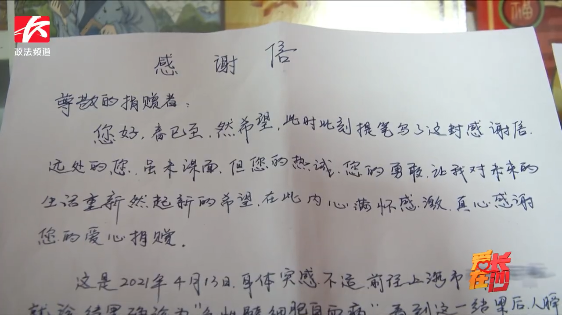 政法频道
感谢信
尊敬的捐赠者:
您好,春已至,然希望,此时此刻提笔写了这封感谢信,
远处的您,虽未谋面,但您的热诚,您的勇敢,让我对未来的
生活重新然起新的希望,在此内心满怀感激,真心感谢
您的爱心捐赠。
这是2021年4月13日,身体突感不适前往上海市
就诊,结果确诊为"急性髓细胞白血病",看到这一结果后,人瞬
爱在长酒